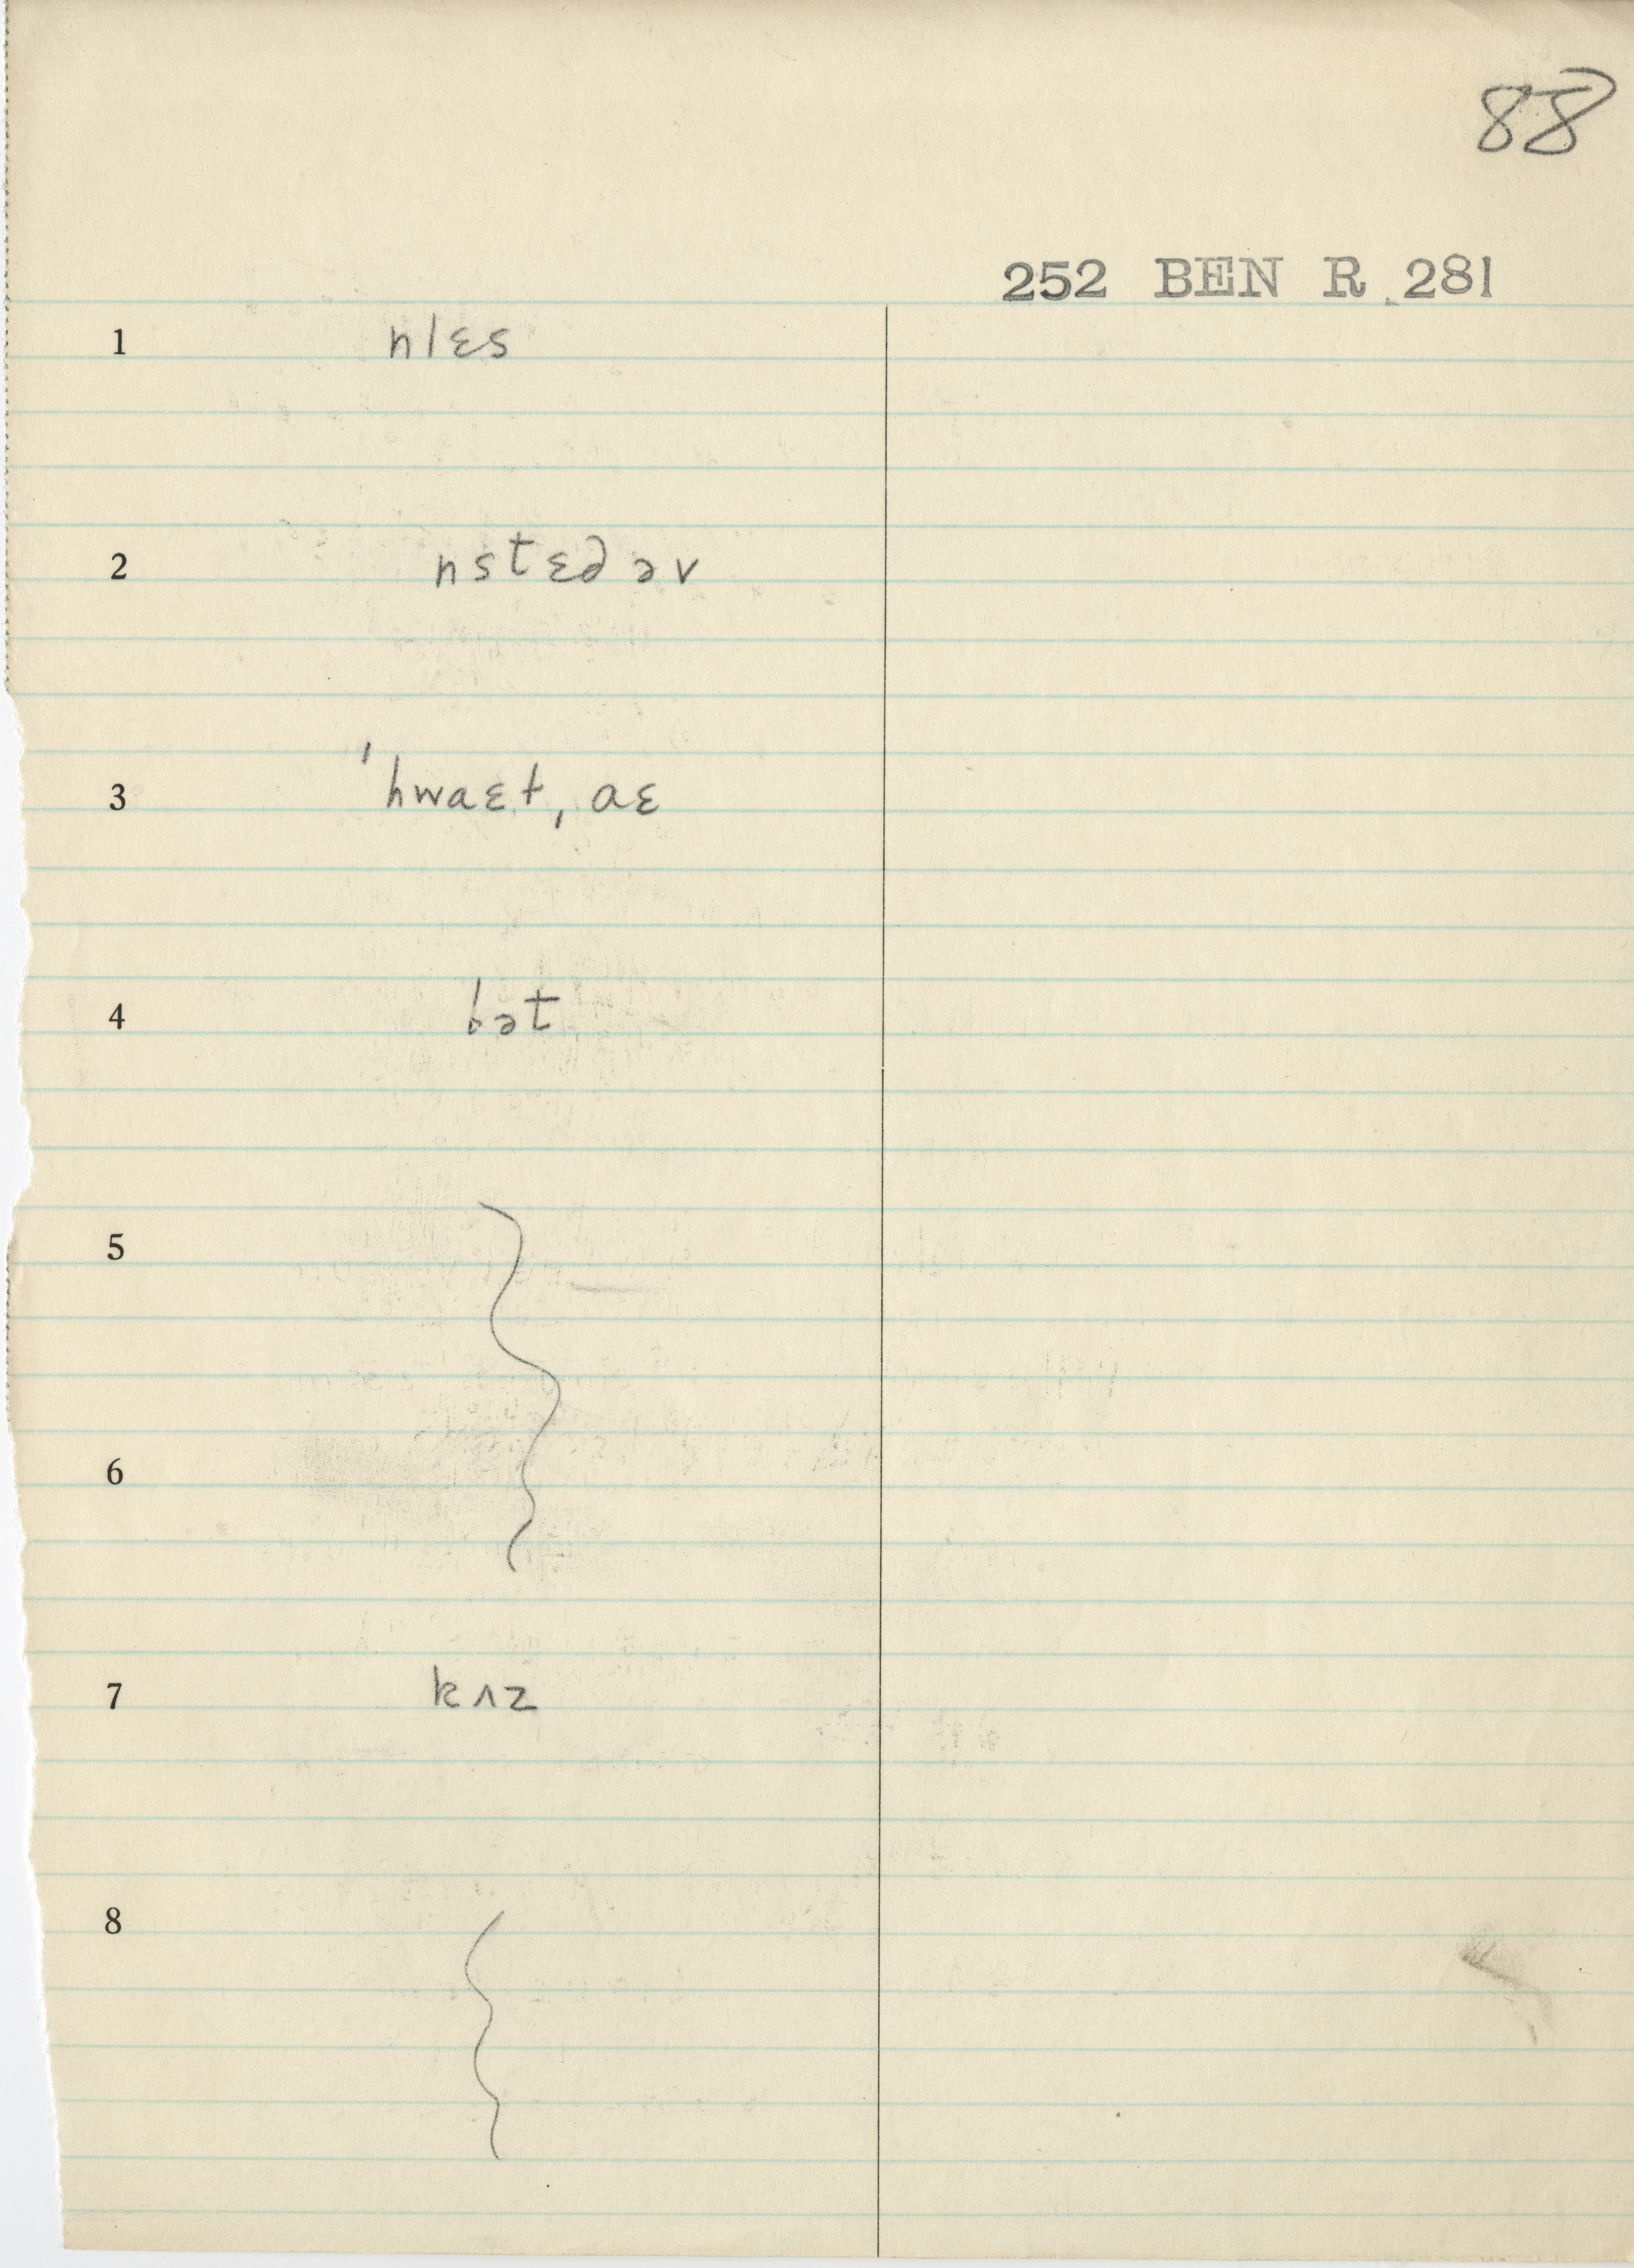 88
252 BEN R 281
1 nlɛs
2 nstɛd əv
3 'hwaɛt, aɛ
4 bət
5
6
7 kʌz
8